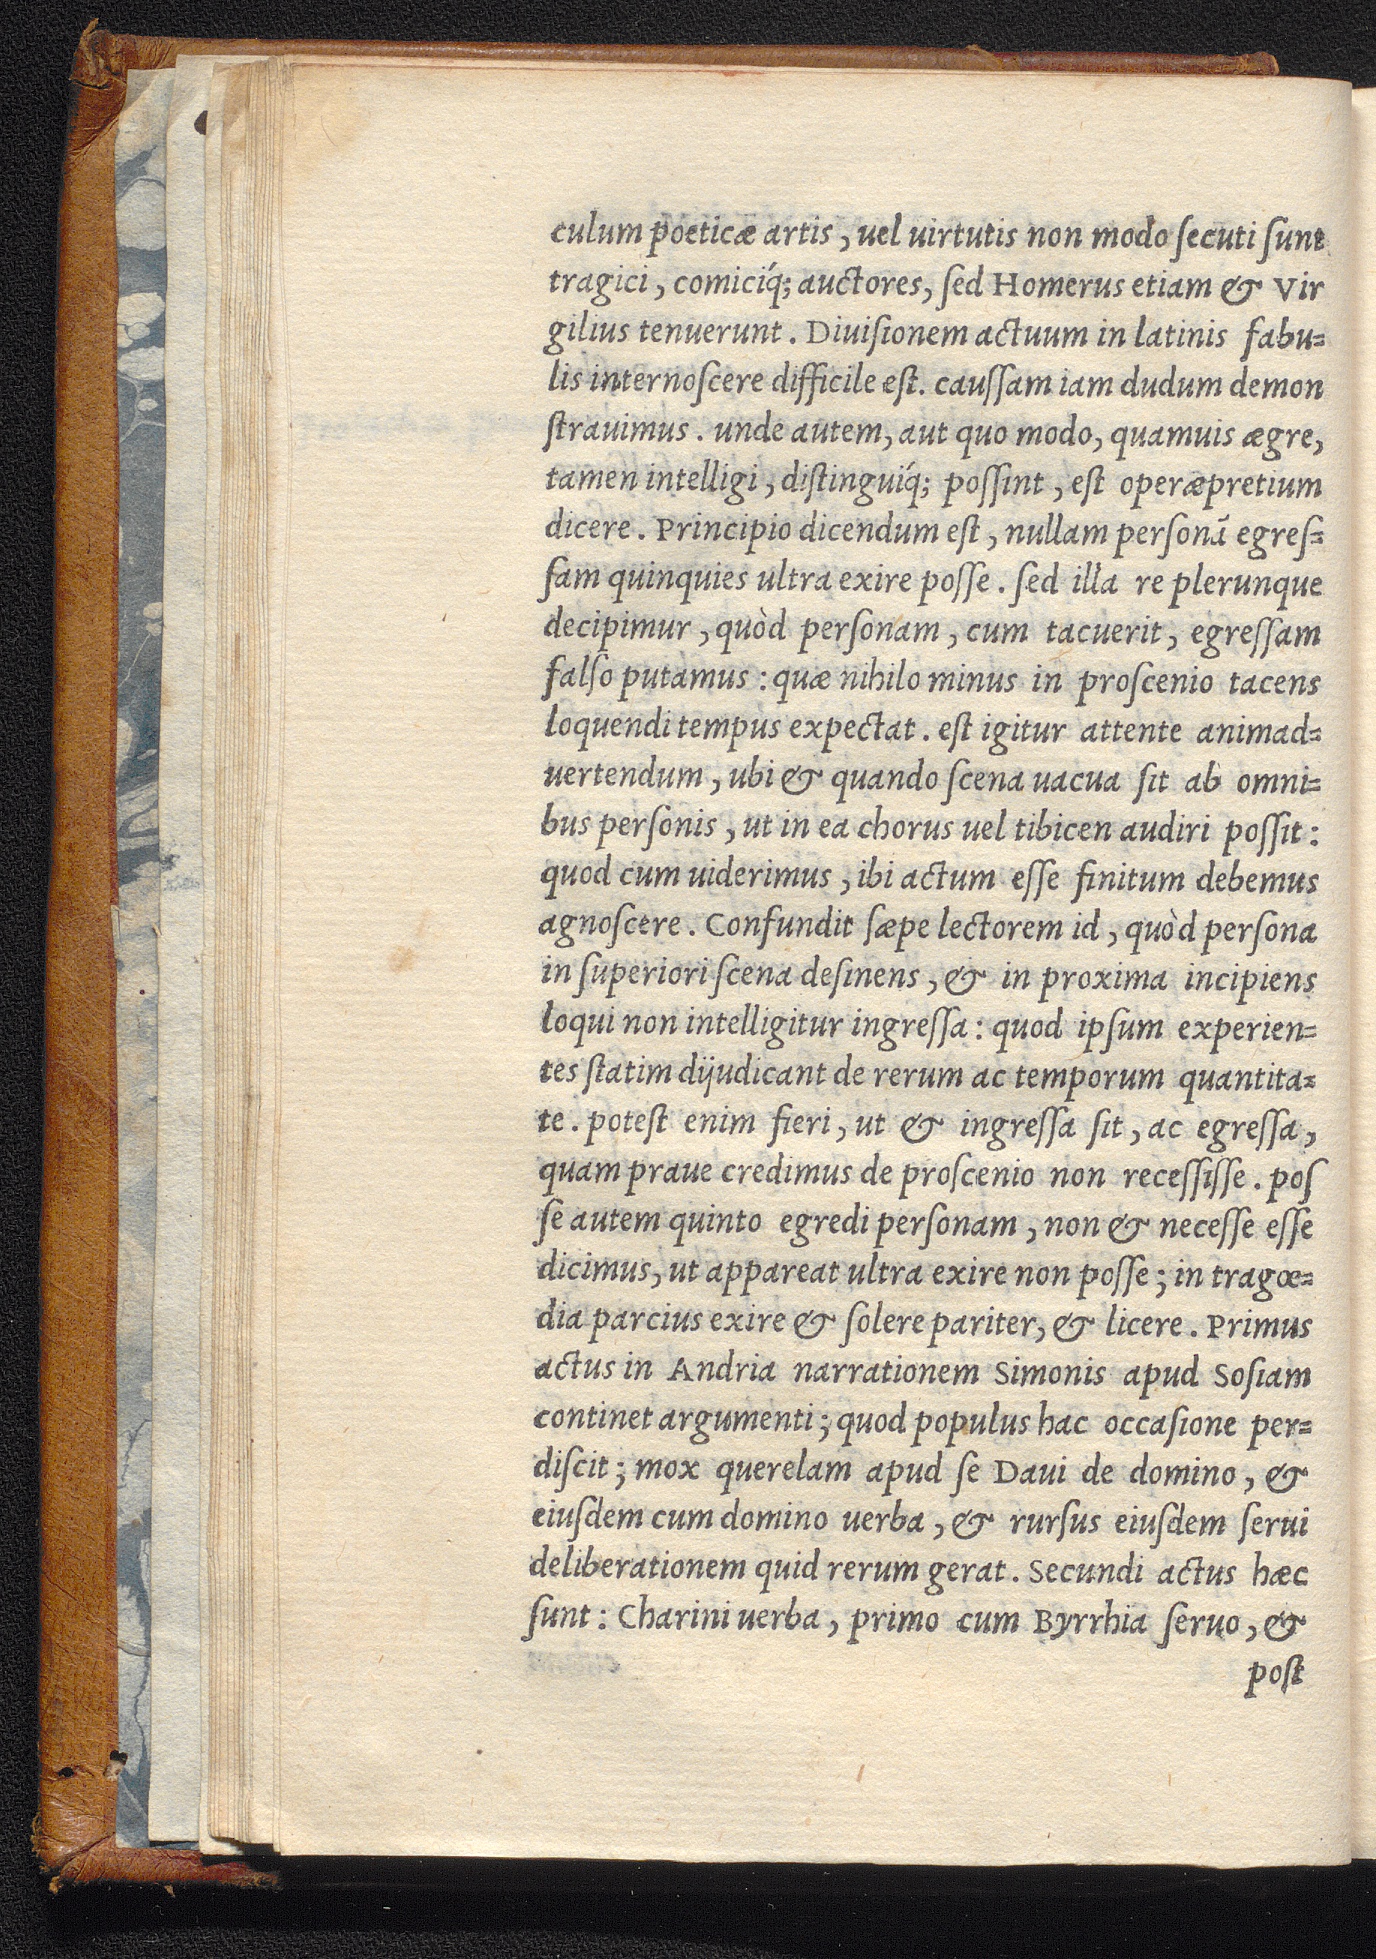 culum poeticæ artis, uel uirtutis non modo ſecuti ſunt
tragici, comiciq́; auctores, ſed Homerus etiam & Vir
gilius tenuerunt. Diuiſionem actuum in latinis fabu=
lis internoſcere difficile eſt. cauſſam iam dudum demon
ſtrauimus. unde autem, aut quo modo, quamuis ægre,
tamen intelligi, diſtinguiq́; poſſint, eſt operæpretium
dicere. Principio dicendum eſt, nullam personā egreſ=
ſam quinquies ultra exire poſſe. ſed illa re plerunque
decipimur, quòd perſonam, cum tacuerit, egreſſam
falſo putamus: quæ nihilo minus in proſcenio tacens
loquendi tempus expectat. eſt igitur attente animad=
uertendum, ubi & quando ſcena uacua ſit ab omni=
bus perſonis, ut in ea chorus uel tibicen audiri poſſit:
quod cum uiderimus, ibi actum eſſe finitum debemus
agnoſcere. Confundit ſæpe lectorem id, quòd perſona
in ſuperiori ſcena deſinens, & in proxima incipiens
loqui non intelligitur ingreſſa: quod ipſum experien=
tes ſtatim dijudicant de rerum ac temporum quantita=
te. poteſt enim fieri, ut & ingreſſa ſit, ac egreſſa,
quam praue credimus de proſcenio non receſſiſſe. poſ
ſe autem quinto egredi perſonam, non & neceſſe eſſe
dicimus, ut appareat ultra exire non poſſe; in tragœ=
dia parcius exire & ſolere pariter, & licere. Primus
actus in Andria narrationem Simonis apud Soſiam
continet argumenti; quod populus hac occaſione per=
diſcit; mox querelam apud ſe Daui de domino, &
eiuſdem cum domino uerba, & rurſus eiuſdem ſerui
deliberationem quid rerum gerat. Secundi actus hæc
ſunt: Charini uerba, primo cum Byrrhia ſeruo, &
poſt